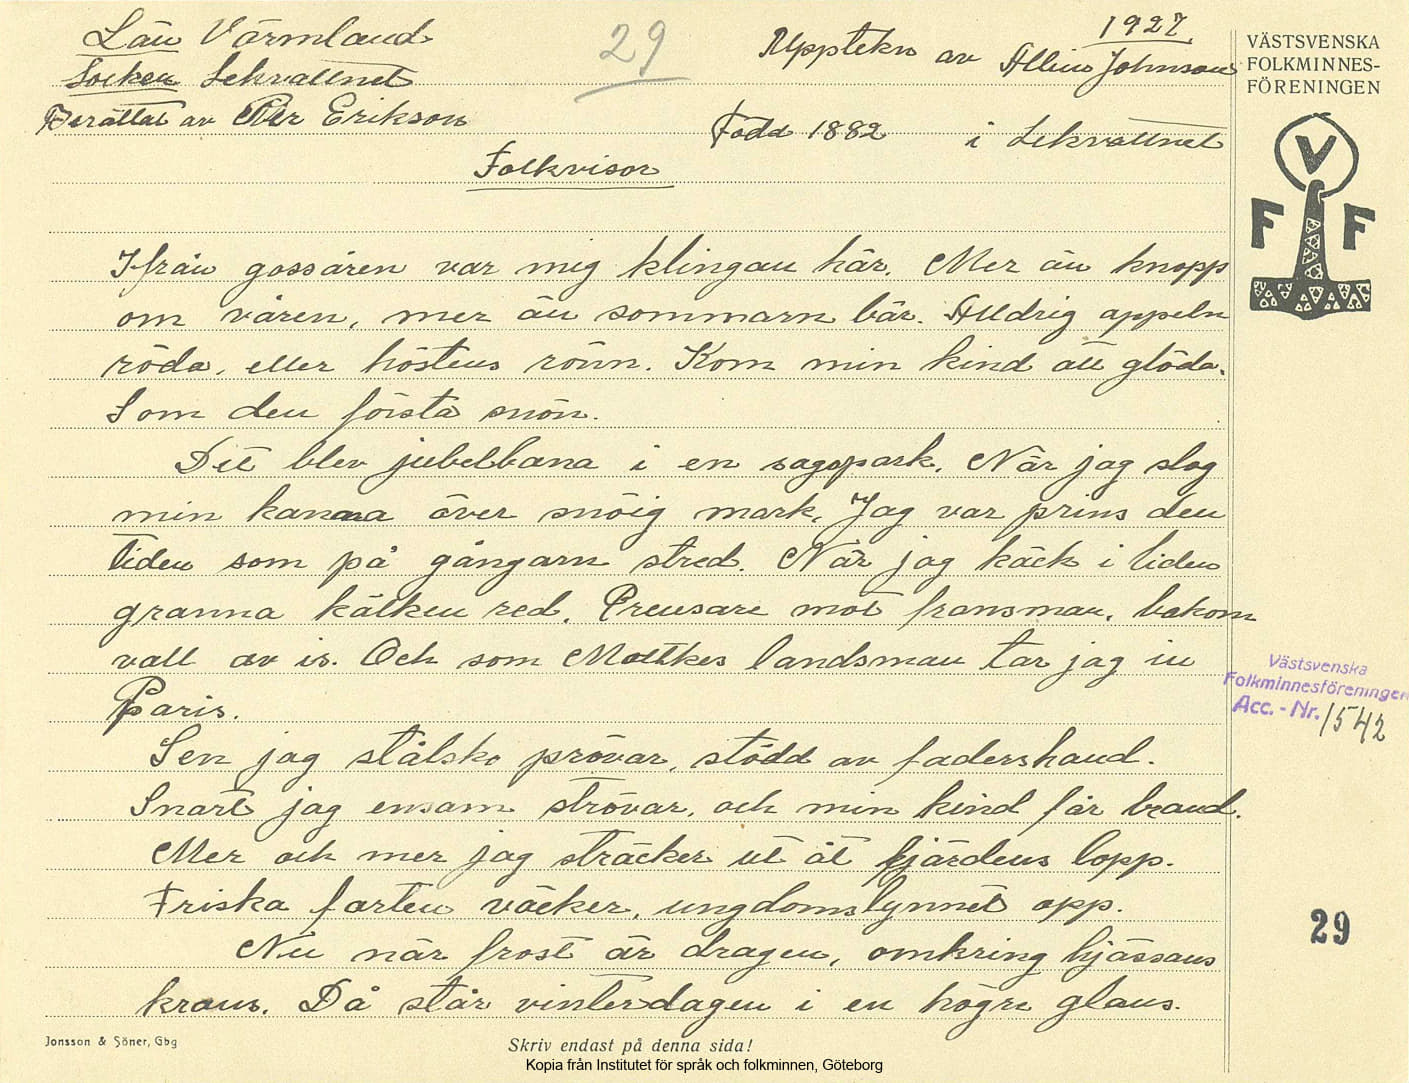 Län Värmland
Socken Lekvattnet
Berättat av Per Erikson
29
1927
Upptekn av Allius Johnson
Född 1882 i Lekvattnet
Folkvisor
VÄSTSVENSKA
FOLKMINNES-
FÖRENINGEN
V
F F
Ifrån gossåren var mig klingan kär. Mer än knopp
om våren, mer än sommarn bär. Alldrig appeln
röda, eller höstens rönn. Kom min kind att glöda.
Som den första snön.
Det blev jubelbana i en sagopark. När jag slog
min kanna över snöig mark. Jag var prins den
tiden som på gångarn stred. När jag käck i liden
granna kälken red. Preusare mot fransman, bakom
vall av is. Och som Moltkes landsman tar jag in
Paris.
Sen jag stålsko prövar, stödd av fadershand.
Snart jag ensam strövar, och min kind får brand.
Mer och mer jag sträcker ut åt fjärdens lopp.
Friska farten väcker, ungdomslynnet opp.
Nu när frost är dragen, omkring hjässans
krans. Då står vinterdagen i en högre glans.
Västsvenska
Folkminnesföreningen
Acc. - Nr. 1542
29
Jonsson & Söner, Gbg
Skriv endast på denna sida!
Kopia från Institutet för språk och folkminnen, Göteborg